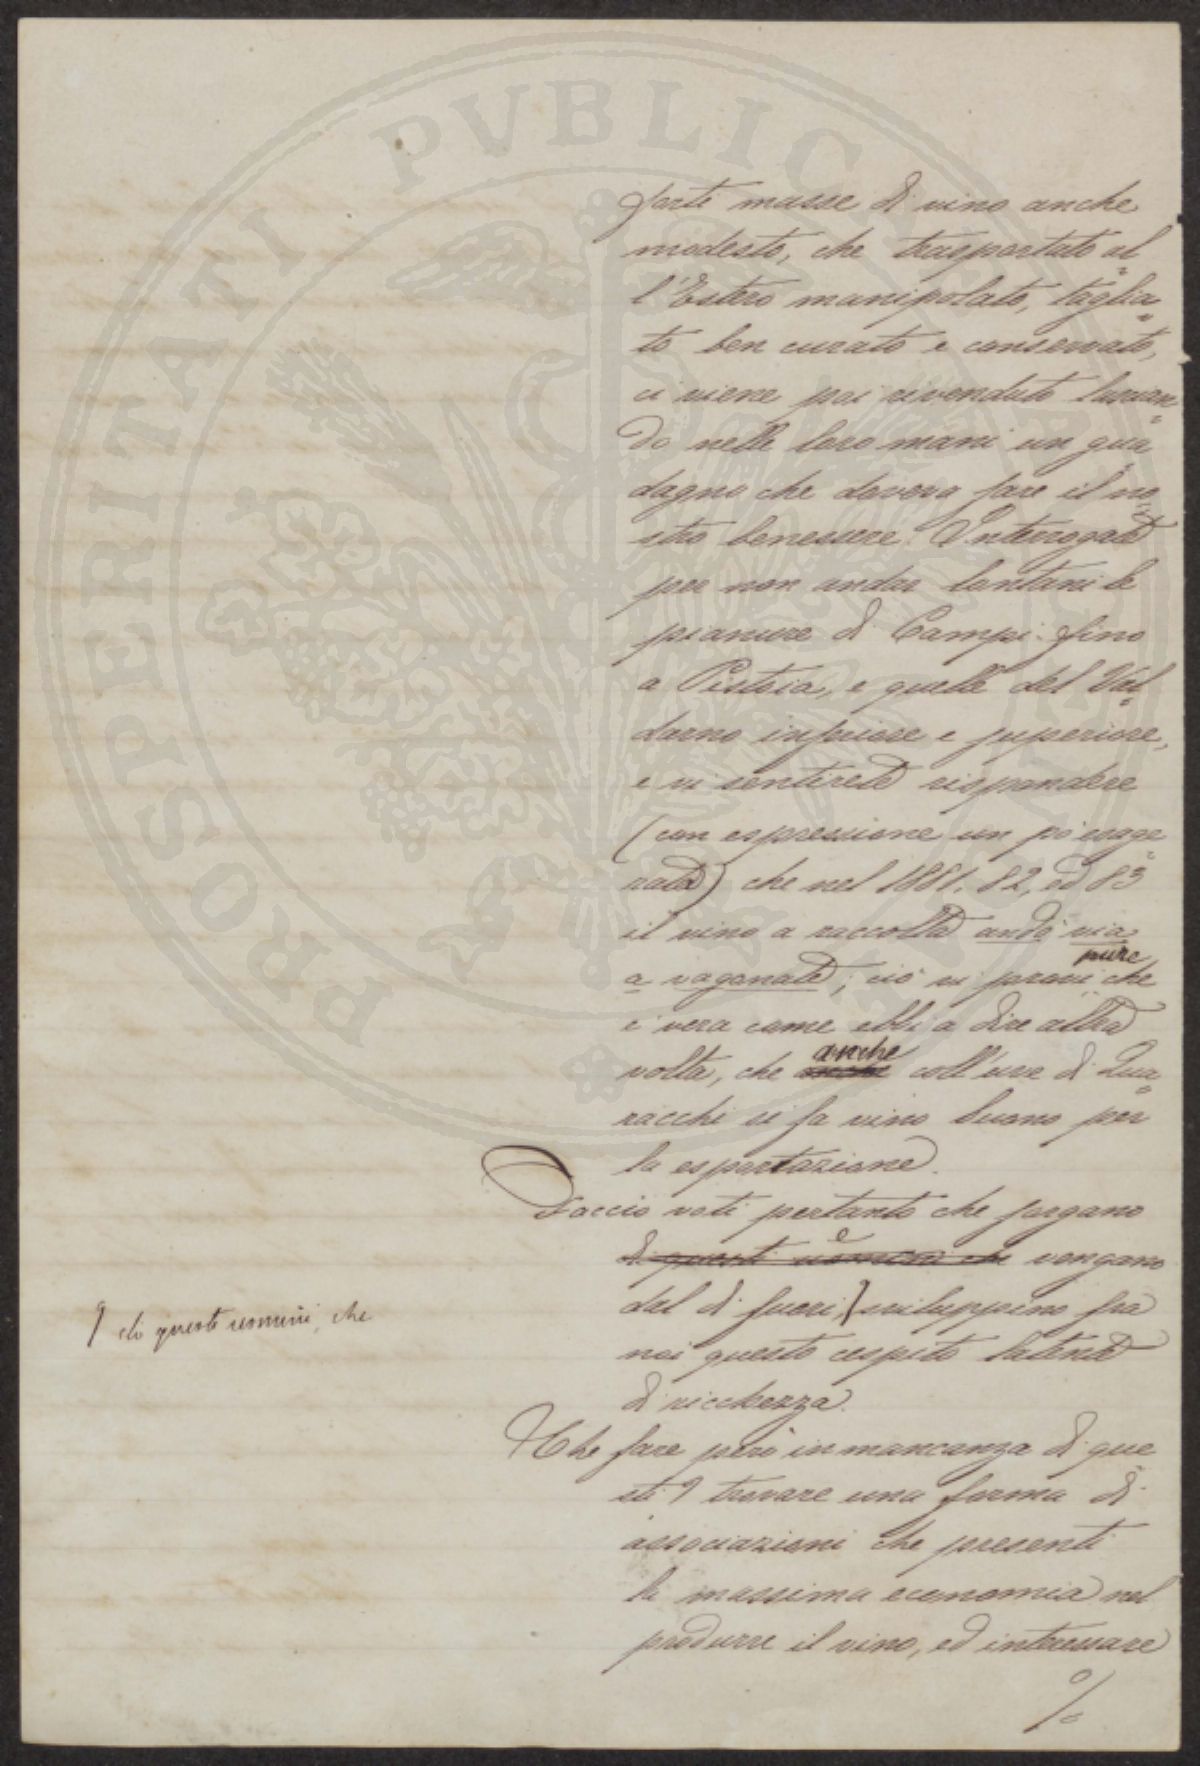 forti masse di vino anche
modesto, che trasportato al
l'Estero manipolato, taglia=
to ben curato e conservato,
ci viene poi rivenduto lascian=
do nelle loro mani un gua
dagno che doveva fare il no
stro benessere. Interrogate
per non andar lontani le
pianure di Campi fino
a Pistoia, e quelle del Val=
darno inferiore e superiore,
e vi sentirete rispondere
(con espressione un pò esage
rata) che nel 1881, 82, ed 83
il vino a raccolta andò via
a vagonate; ciò vi provi pure che
è vera come ebbi a dire altra
volta, che anche coll'uve di Qua=
racchi si fa vino buono per
la esportazione.
Faccio voti pertanto che sorgano
di questi uomini che e vengano
dal di fuori, sviluppino fra
di questi uomini, che
noi questo cespite latente
di ricchezza.
Che fare però in mancanza di que
sti? trovare una forma di
associazioni che presenti
la massima economia nel
produrre il vino, ed interessare
PROSPERITATI PVBLICAE